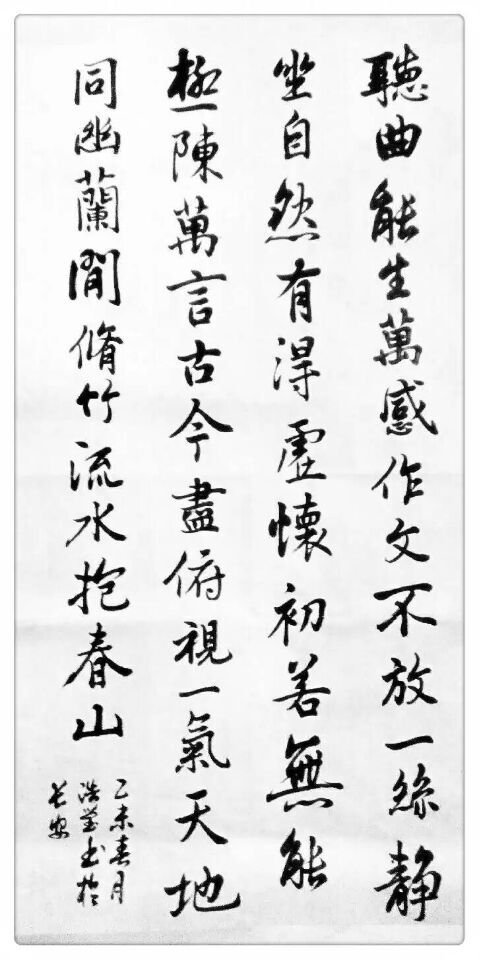 聽曲能生萬感作文不放一絲靜
坐自然有得虛懷初若無能
極一陳萬言古今盡俯視一氣天地
同幽蘭間脩竹流水抱春山
乙未春月
浩瑩书於
長安